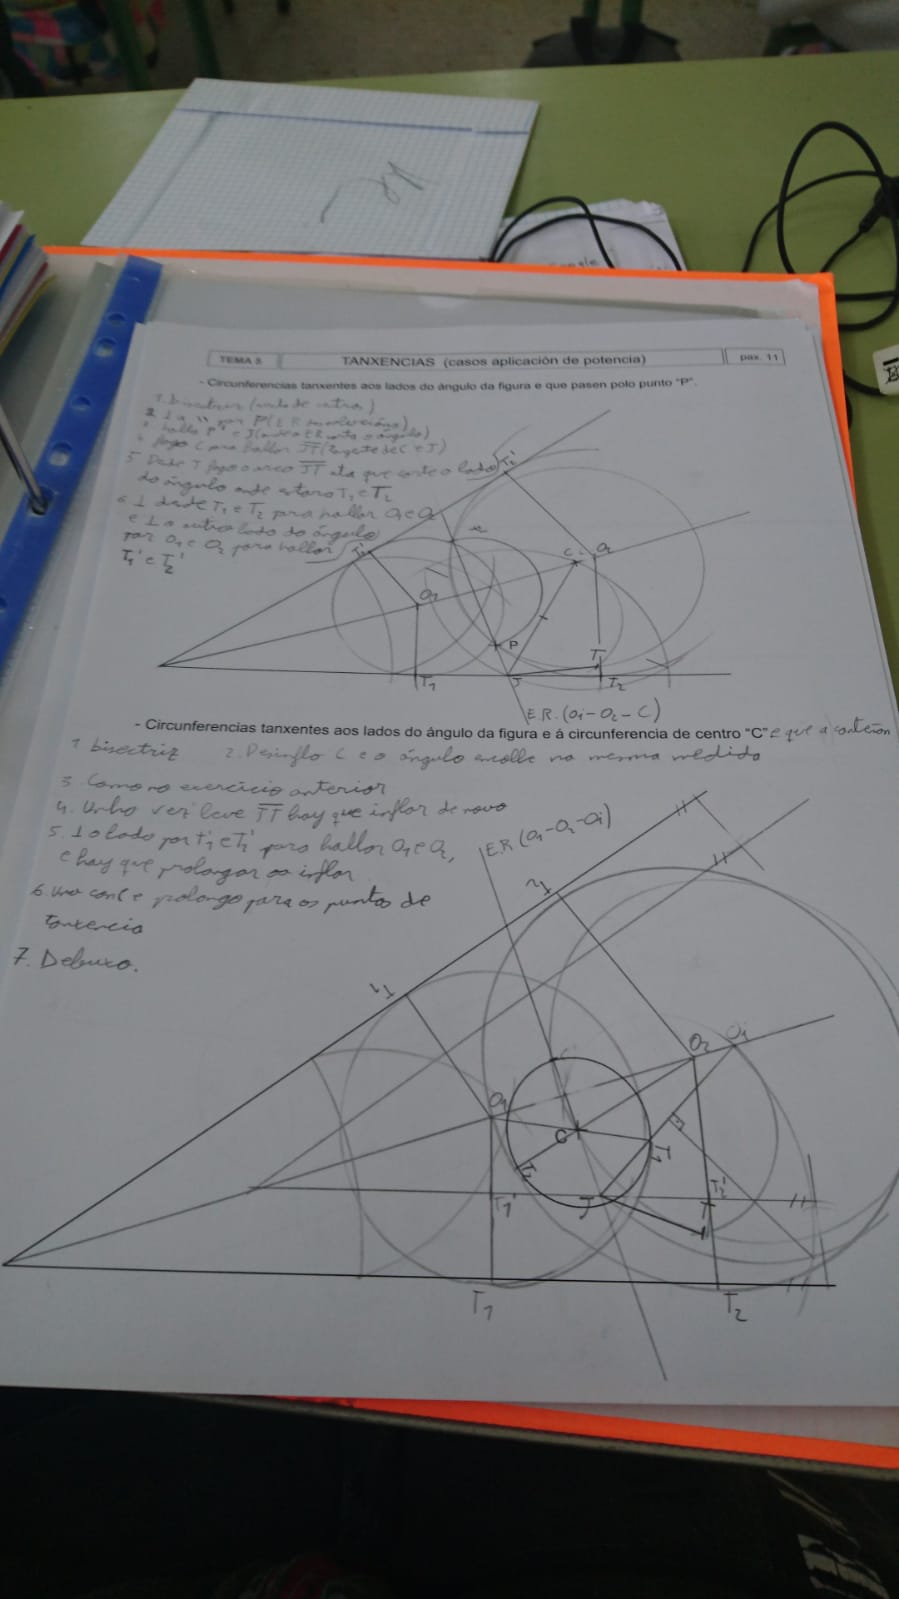 TEMA 5 TANXENCIAS (casos aplicación de potencia) pax. 11
- Circunferencias tanxentes aos lados do ángulo da figura e que pasen polo punto "P".
1. bisectriz
2. ⊥ a por P (E.R.
3. hallo P' e J
4. fago C para hallar JT (tanxente de C e J)
5. Dende J fago o arco JT ata que corte o lado
do ángulo onde estarán T1 e T2
6. ⊥ dende T1 e T2 para hallar O1 e O2
e ⊥ o outro lado do ángulo
por O1 e O2 para hallar
T1' e T2'
T2'
T1'
C
O2
O1
P
T
J
T1
T2
E.R. (O1-O2-C)
- Circunferencias tanxentes aos lados do ángulo da figura e á circunferencia de centro "C" e que a conteñan
1 bisectriz 2. Desinflo C e o ángulo encolle na mesma medida
3 Como no exercicio anterior
4. Unha vez leve JT hay que inflar de novo
5. ⊥ o lado por T1' e T2' para hallar O1 e O2,
e hay que prolongar ao inflar
6. Uno con C e prolongo para os puntos de
tanxencia
7. Debuxo.
E.R. (O1-O2-Oi)
O2
Oi
O1
C
T1'
J
T
T2'
T1
T2